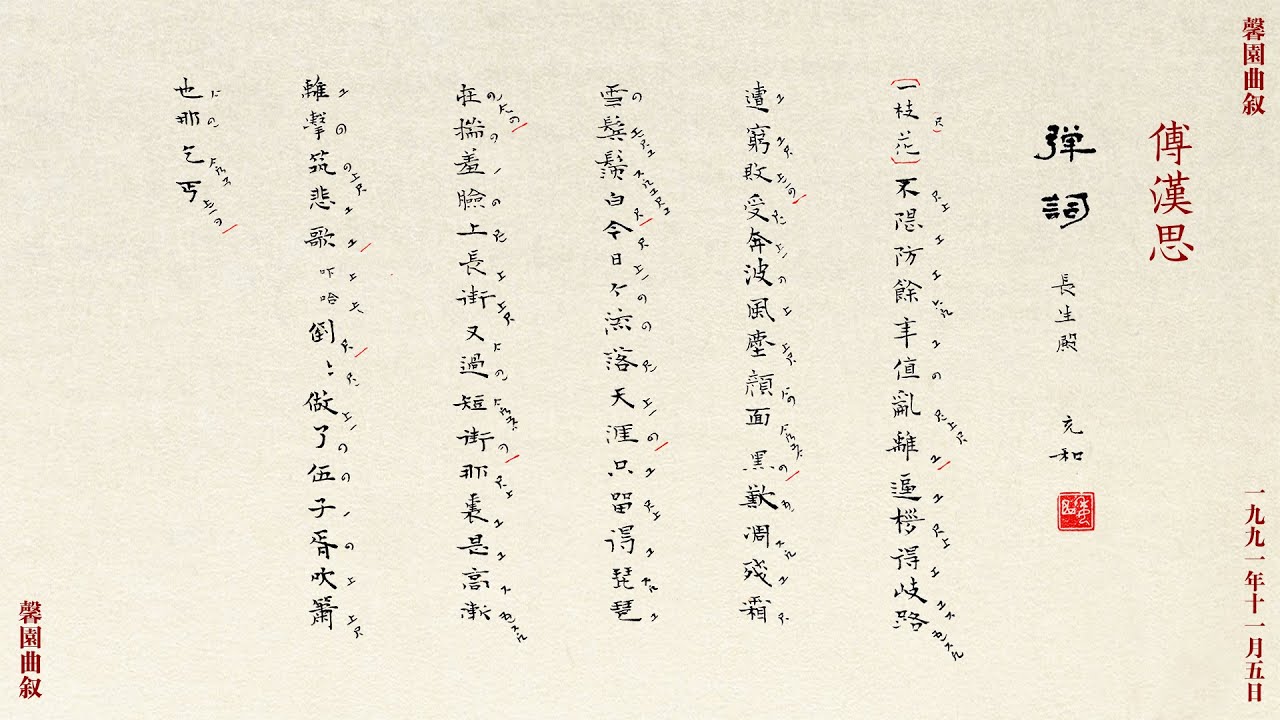 馨園曲叙
一九九一年十一月五日
傅漢思
弹詞 長生殿 充和
[一枝花]不隄防餘年值亂離逼拶得岐路
遭窮敗受奔波風塵顔面黑歎凋殘霜
雪鬓鬚白今日个流落天涯只留得琵琶
在揣羞臉上長街又過短街那裏是高漸
離擊筑悲歌咋哈倒〻做了伍子胥吹簫
也那乞丐
馨園曲叙